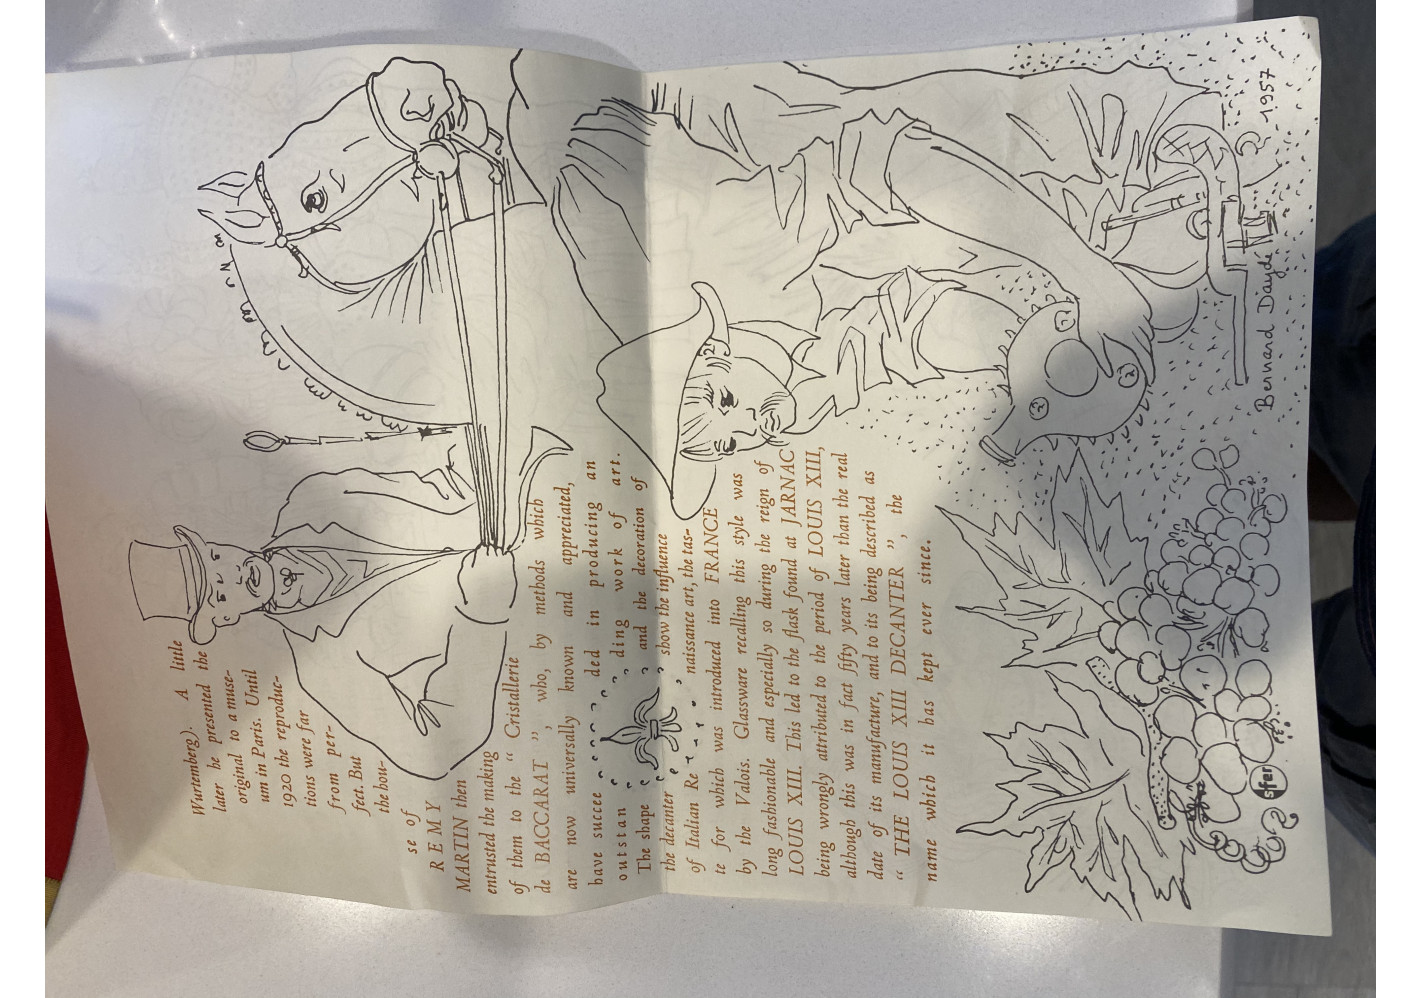 Wurtemberg). A little
later he presented the
original to a muse-
um in Paris. Until
1920 the reproduc-
tions were far
from per-
fect. But
the bou-
se of
REMY
MARTIN then
entrusted the making
of them to the “ Cristallerie
de BACCARAT ”, who, by methods which
are now universally known and appreciated,
have succee ded in producing an
outstan ding work of art.
The shape and the decoration of
the decanter show the influence
of Italian Re naissance art, the tas-
te for which was introduced into FRANCE
by the Valois. Glassware recalling this style was
long fashionable and especially so during the reign of
LOUIS XIII. This led to the flask found at JARNAC
being wrongly attributed to the period of LOUIS XIII,
although this was in fact fifty years later than the real
date of its manufacture, and to its being described as
“ THE LOUIS XIII DECANTER ”, the
name which it has kept ever since.
sfer
Bernard Daydé 1957